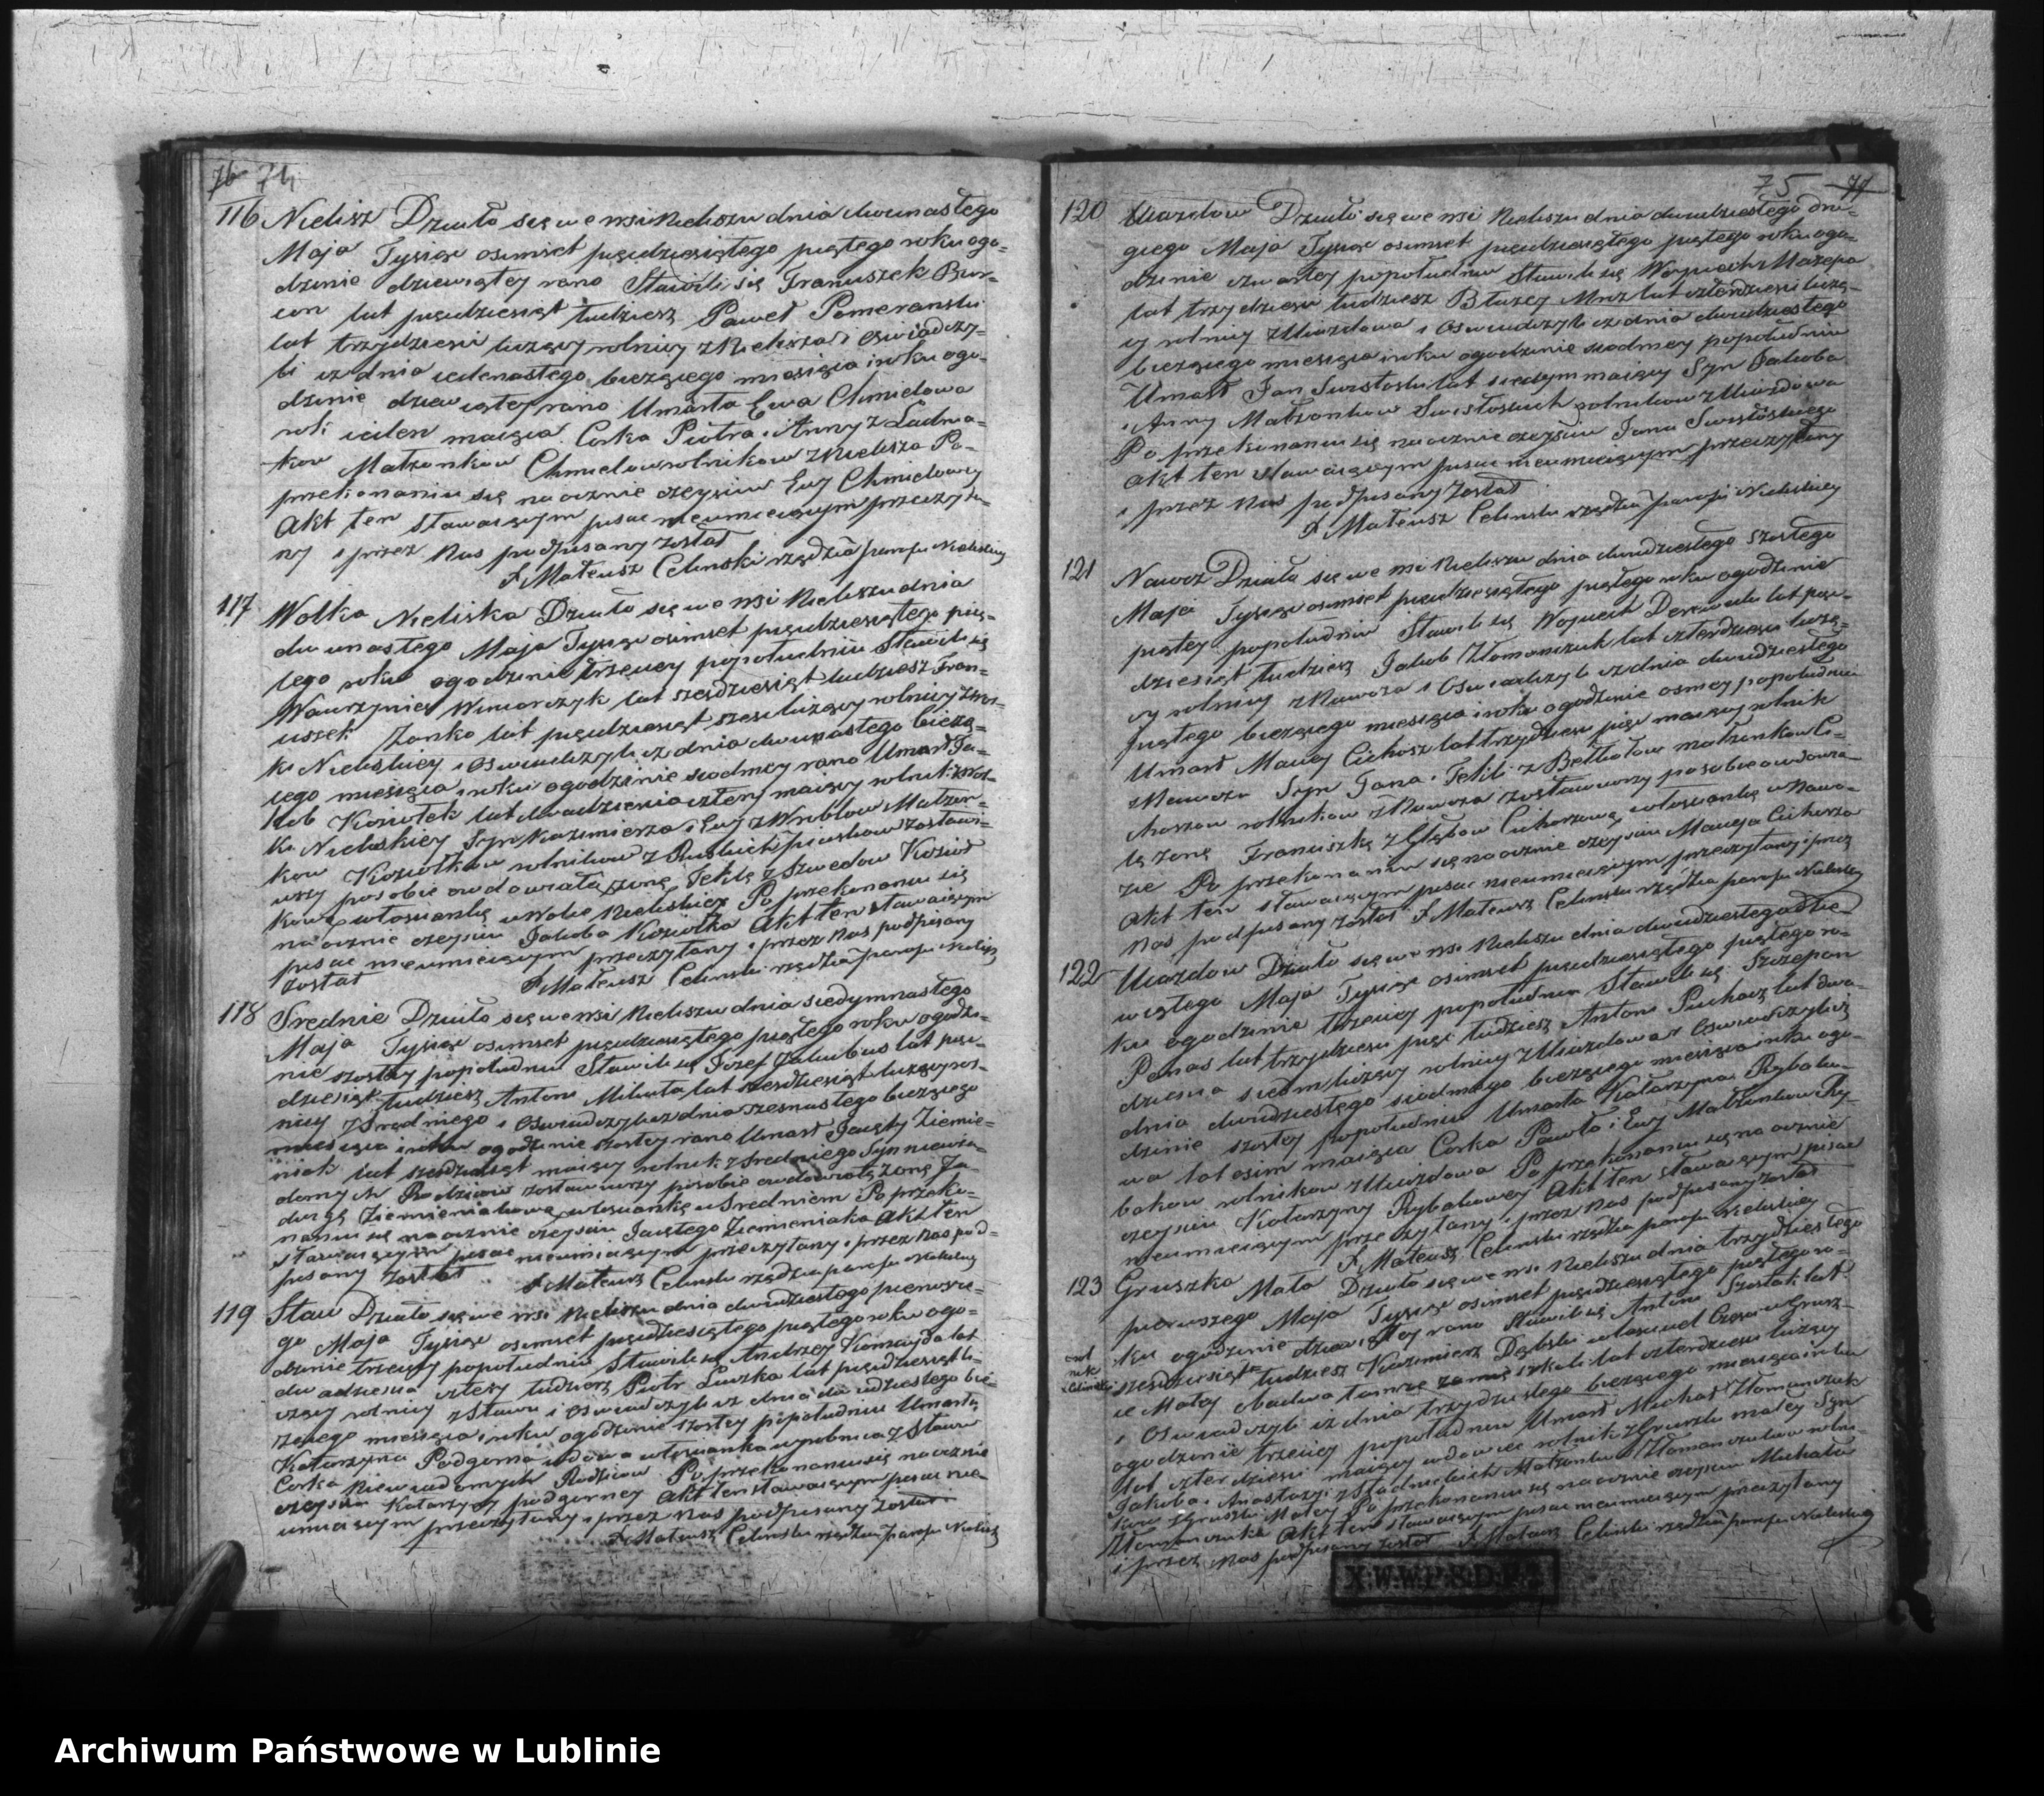 76 74
116 Nielisz Działo się we wsi Nieliszu dnia dwunastego
Maja Tysiąc osimset pięcdziesiątego piątego roku ogo-
dzinie dziewiątey rano Stawili się Franciszek Bur-
lat pięcdziesiąt tudziesz Paweł Pomeranski
lat trzydziesci liczący rolnicy z Nielisza i oswiadczy-
li iż dnia iedenastego bieżącego miesiąca i roku ogo-
dzinie dziewiątey rano Umarła Ewa Chmielowa
rok ieden maiąca Corka Piotra i Anny z Ładnia-
kow Małzonkow Chmielow rolnikow z Nielisza Po
przekonaniu się naocznie oześciu Ewy Chmielowey
Akt ten stawaiącym pisac nieumieiącym przeczyta-
ny i przez Nas podpisany został
X Mateusz Celinski rządzca parafii Nieliskiey
117 Wolka Nieliska Działo się we wsi Nieliszu dnia
dwunastego Maja Tysiąc osimset pięcdziesiątego pią-
tego roku ogodzinie trzeciey popołudniu Stawili się
Wawrzyniec Winiarczyk lat szesdziesiąt tudziesz Fran-
ciszek Zanko lat pięcdziesiąt szesc liczący rolnicy z Wol-
ki Nieliskiey i Oswiadczyli iż dnia dwunastego bieżą-
cego miesiąca i roku ogodzinie siodmey rano Umarł Ja-
kob Koziołek lat dwadziescia cztery maiący rolnik z Wol-
ki Nieliskiey Syn Kazimierza i Ewy z Wroblow Małzon-
kow Koziołkow rolnikow z Ruskich Piaskow zostawi-
wszy posobie owdowiałą zonę Teklę z Szwedow Kozioł-
kową włosciankę w Wolce Nieliskiey Po przekonaniu się
naocznie oześciu Jakoba Koziołka Akt ten stawaiącym
pisac nieumieiącym przeczytany i przez Nas podpisany
został X Mateusz Celinski rządzca parafii Nielisz
118 Srednie Działo się we wsi Nieliszu dnia siedymnastego
Maja Tysiąc osimset pięcdziesiątego piątego roku ogodzi-
nie szostey popołudniu Stawili się Jozef Jakubus lat pięc-
dziesiąt tudziesz Antoni Mikuta lat szesdziesiąt liczący rol-
nicy z Sredniego i Oswiadczyli iż dnia szesnastego bieżącego
miesiąca i roku ogodzinie szostey rano Umarł Jacęty Ziemie-
niak lat szesdziesiąt maiący rolnik z Sredniego Syn niewia-
domych Rodzicow zostawiwszy posobie owdowiałą zonę Ja-
dwigę Ziemieniakową włosciankę w Sredniem Po przeko-
naniu się naocznie oześciu Jacętego Ziemieniaka Akt ten
stawaiącym pisac nieumieiącym przeczytany i przez Nas pod-
pisany został X Mateusz Celinski rządzca parafii Nieliskiey
119 Staw Działo się we wsi Nieliszu dnia dwudziestego pierwsze-
go Maja Tysiąc osimset pięcdziesiątego piątego roku ogo-
dzinie trzeciey popołudniu Stawili się Andrzey Komayda lat
dwadziescia cztery tudziesz Piotr Luszka lat pięcdziesiąt li-
czący rolnicy z Stawu i Oswiadczyli iż dnia dwudziestego bie-
żącego miesiąca i roku ogodzinie szostey popołudniu Umarła
Katarzyna Podgorna wdowa włoscianka wyrobnica z Stawu
Corka Niewiadomych Rodzicow Po przekonaniu się naocznie
oześciu Katarzyny Podgorney Akt ten stawaiącym pisac nie-
umieiącym przeczytany i przez Nas podpisany został
X Mateusz Celinski rządzca parafii Nielisz
75 77
120 Uiazdow Działo się we wsi Nieliszu dnia dwudziestego dru-
giego Maja Tysiąc osimset pięcdziesiątego piątego roku ogo-
dzinie czwartey popołudniu Stawili się Woyciech Mazepa
lat trzydziesci tudziesz Błazey Mroz lat czterdziesci liczą-
cy rolnicy z Uiazdowa i Oswiadczyli iż dnia dwudziestego
bieżącego miesiąca i roku ogodzinie siodmey popołudniu
Umarł Jan Swistoski lat siedym maiący Syn Jakoba
i Anny Małzonkow Swistoskich rolnikow z Uiazdowa
Po przekonaniu się naocznie oześciu Jana Swistoskiego
Akt ten stawaiącym pisac nieumieiącym przeczytany
i przez Nas podpisany został
X Mateusz Celinski rządzca parafii Nieliskiey
121 Nawoz Działo się we wsi Nieliszu dnia dwudziestego szostego
Maja Tysiąc osimset pięcdziesiątego piątego roku ogodzinie
piątey popołudniu Stawili się Woyciech lat pięc-
dziesiąt tudziesz Jakob Złomanczuk lat czterdziesci liczą-
cy rolnicy z Nawoza i Oswiadczyli iż dnia dwudziestego
piątego bieżącego miesiąca i roku ogodzinie osmey popołudniu
Umarł Maciey Cichosz lat trzydziesci pięc maiący rolnik
z Nawoza Syn Jana i Tekli z małzonkow Ci-
choszow rolnikow z Nawoza zostawiwszy posobie owdowia-
łą zonę Franciszkę z Głąbow Cichoszową włosciankę w Nawo-
zie Po przekonaniu się naocznie oześciu Macieja Cichosza
Akt ten stawaiącym pisac nieumieiącym przeczytany i przez
Nas podpisany został X Mateusz Celinski rządzca parafii Nieliskiey
122 Uiazdow Działo się we wsi Nieliszu dnia dwudziestego dzie-
wiątego Maja Tysiąc osimset pięcdziesiątego piątego ro-
ku ogodzinie trzeciey popołudniu Stawili się Szczepan
Panas lat trzydziesci pięc tudziesz Antoni Puchacz lat dwa-
dziescia siedm liczący rolnicy z Uiazdowa i Oswiadczyli iż
dnia dwudziestego siodmego bieżącego miesiąca i roku ogo-
dzinie szostey popołudniu Umarła Katarzyna Rybako-
wa lat osim maiąca Corka Pawła i Ewy Małzonkow Ry-
bakow rolnikow z Uiazdowa Po przekonaniu się naocznie
oześciu Katarzyny Rybakowey Akt ten stawaiącym pisac
nieumieiącym przeczytany i przez Nas podpisany został
X Mateusz Celinski rządzca parafii Nieliskiey
123 Gruszka Mała Działo się we wsi Nieliszu dnia trzydziestego
pierwszego Maja Tysiąc osimset pięcdziesiątego piątego ro-
ku ogodzinie dziewiątey rano Stawili się Antoni Szostak lat
szesdziesiąt tudziesz Kazimierz Dębski własciciel Częsci w Grusz-
ce Małey obadwa tamze zamieszkali lat czterdziesci liczący
i Oswiadczyli iż dnia trzydziestego bieżącego miesiąca i roku
ogodzinie trzeciey popołudniu Umarł Michał Złomanczuk
lat czterdziesci maiący wdowiec rolnik z Gruszki małey Syn
Jakoba i Anastazyi z Małzonkow Złomanczukow rolni-
kow z Gruszki Małey Po przekonaniu się naocznie oześciu Michała
Złomanczuka Akt ten stawaiącym pisac nieumieiącym przeczytany
i przez Nas podpisany został X Mateusz Celinski rządzca parafii Nieliskiey
Archiwum Państwowe w Lublinie